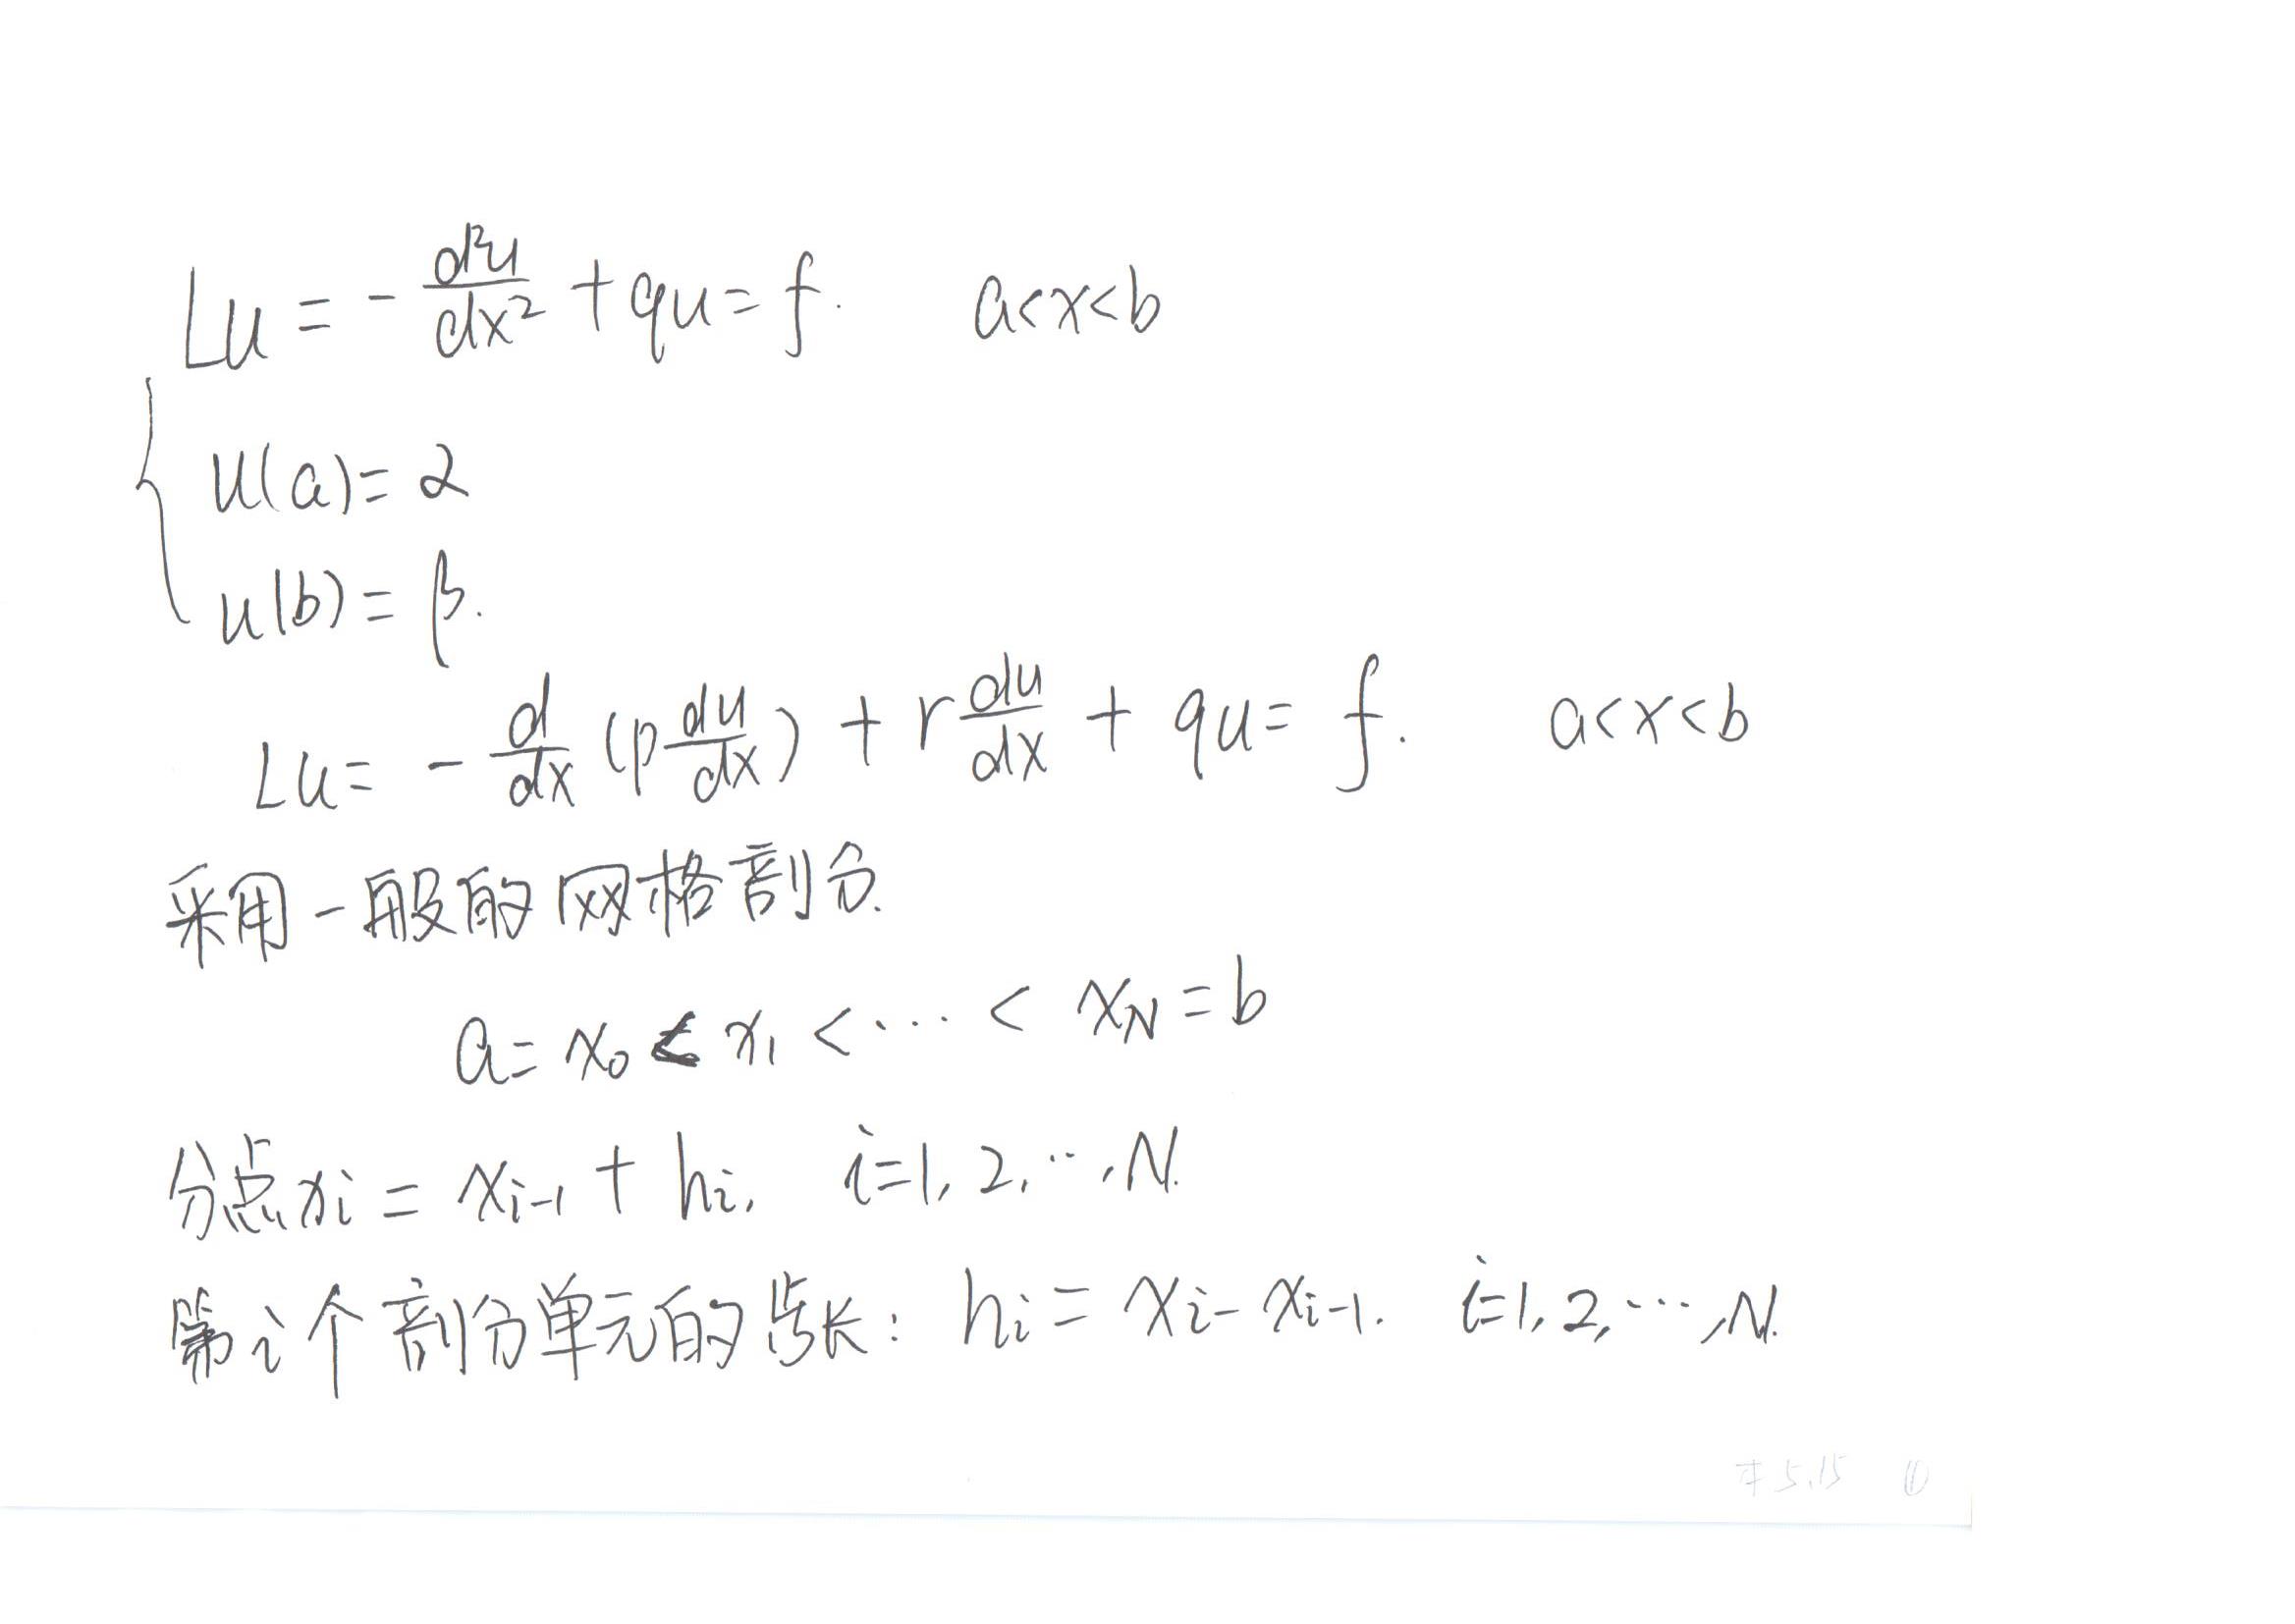 Lu = - d²u/dx² + qu = f. a<x<b
u(a) = α
u(b) = β.
Lu = - d/dx (p du/dx) + r du/dx + qu = f. a<x<b
采用一般的网格剖分.
a = x₀ < x₁ < ⋯ < x_N = b
分点 xᵢ = xᵢ₋₁ + hᵢ, i=1, 2, ⋯, N.
第i个剖分单元的步长: hᵢ = xᵢ - xᵢ₋₁. i=1, 2, ⋯, N.
5.15 ①